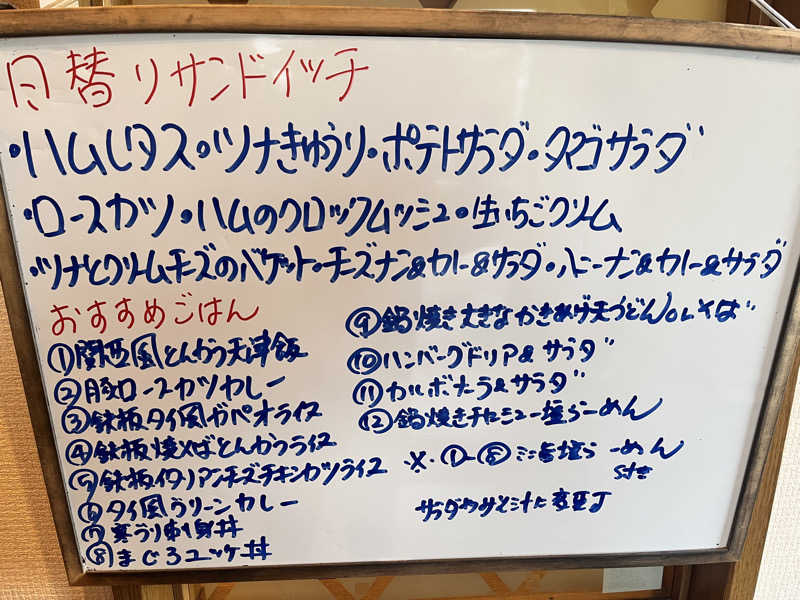 日替りサンドイッチ
・ハムレタス・ツナきゅうり・ポテトサラダ・タマゴサラダ
・ロースカツ・ハムのクロックムッシュ・生いちごクリーム
・ツナとクリームチーズのバゲット・チーズナン&カレー&サラダ・ハニーナン&カレー&サラダ
おすすめごはん
①関西風とんかつ天津飯
②豚ロースカツカレー
③鉄板タイ風ガパオライス
④鉄板焼そばとんかつライス
⑤鉄板イタリアンチーズチキンカツライス
⑥タイ風グリーンカレー
⑦寒ブリ刺身丼
⑧まぐろユッケ丼
⑨鍋焼き大きなかきあげ天うどん。or そば
⑩ハンバーグドリア&サラダ
⑪カルボナーラ&サラダ
⑫鍋焼きチャーシュー塩らーめん
※・①-⑧ミニ塩らーめん
付き
サラダ